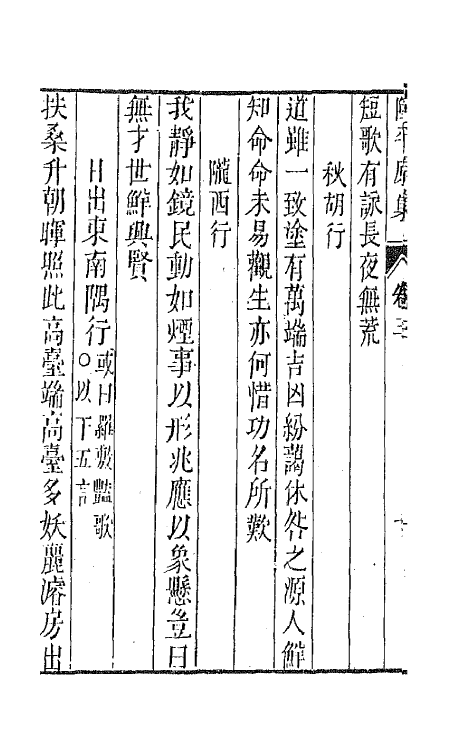 陸平原集 卷三
短歌有詠長夜無荒
秋胡行
道雖一致塗有萬端吉凶紛藹休咎之源人鮮
知命命未易觀生亦何惜功名所歎
隴西行
我靜如鏡民動如煙事以形兆應以象懸豈曰
無才世鮮興賢
日出東南隅行 或曰羅敷豔歌
○以下五言
扶桑升朝暉照此高臺端高臺多妖麗濬房出